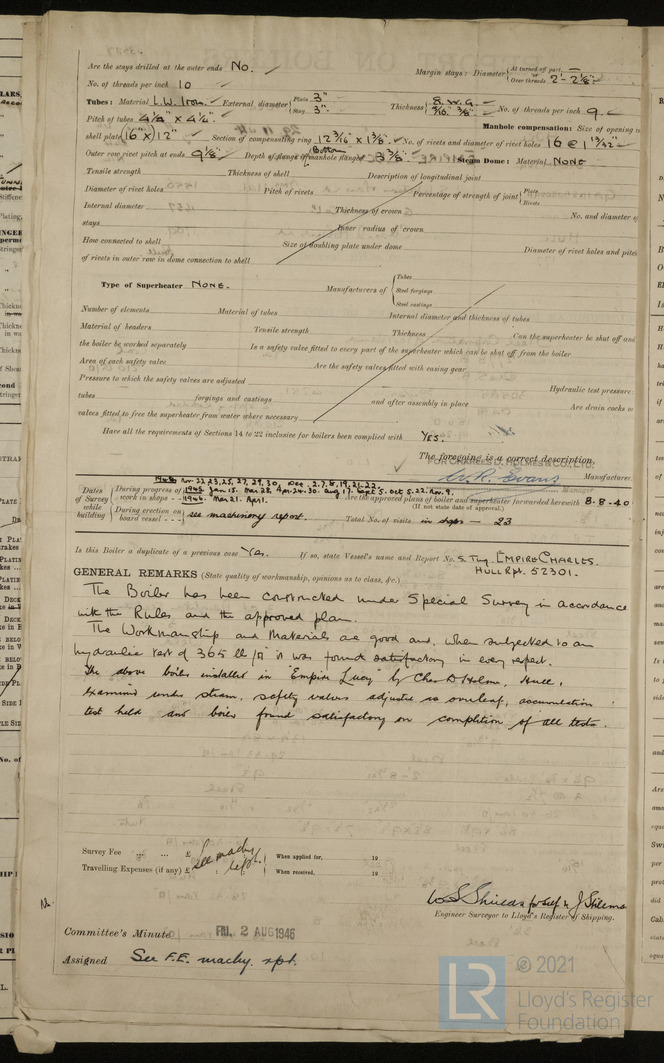 Are the stays drilled at the outer ends No. Margin stays: Diameter { At turned off part, — Over threads 2'-2⅛"
No. of threads per inch 10
Tubes: Material L.W. Iron. External diameter { Plain 3" Stay 3". Thickness { 8 W.G. 5/16" 3/8" No. of threads per inch 9.
Pitch of tubes 4¼" x 4¼" Manhole compensation: Size of opening in
shell plate 16" x 12" Section of compensating ring 12 3/16" x 1⅜" No. of rivets and diameter of rivet holes 16 @ 1 5/32"
Outer row rivet pitch at ends 9⅛" Depth of flange if manhole flanged Bottom 3⅜" Steam Dome: Material NONE
Tensile strength Thickness of shell Description of longitudinal joint
Diameter of rivet holes Pitch of rivets Percentage of strength of joint { Plate Rivets
Internal diameter Thickness of crown No. and diameter of
stays Inner radius of crown
How connected to shell Size of doubling plate under dome Diameter of rivet holes and pitch
of rivets in outer row in dome connection to shell
Type of Superheater NONE. Manufacturers of { Tubes Steel forgings Steel castings
Number of elements Material of tubes Internal diameter and thickness of tubes
Material of headers Tensile strength Thickness Can the superheater be shut off and
the boiler be worked separately Is a safety valve fitted to every part of the superheater which can be shut off from the boiler
Area of each safety valve Are the safety valves fitted with easing gear
Pressure to which the safety valves are adjusted Hydraulic test pressure:
tubes forgings and castings and after assembly in place Are drain cocks or
valves fitted to free the superheater from water where necessary
Have all the requirements of Sections 14 to 22 inclusive for boilers been complied with YES.
The foregoing is a correct description,
FOR CHARLES D. HOLMES & CO., LTD.
W.R. Evans Manufacturer
Manager
Dates of Survey while building { During progress of work in shops - - Nov. 22, 23, 25, 27, 29, 30, Dec. 2, 7, 8, 19, 21, 22. 1945 Jan 15. Mar 28. Apr. 24. 30. Aug 17. Sept 5. Oct 5. 22. Nov. 9. 1946. Mar 21. Apr 1. Are the approved plans of boiler and superheater forwarded herewith 8-8-40
(If not state date of approval.)
During erection on board vessel - - - see machinery report. Total No. of visits in shops — 23
Is this Boiler a duplicate of a previous case Yes. If so, state Vessel's name and Report No. S. Tug. EMPIRE CHARLES.
HULL Rpt. 52301.
GENERAL REMARKS (State quality of workmanship, opinions as to class, &c.)
The Boiler has been constructed under Special Survey in accordance
with the Rules and the approved plan.
The Workmanship and Materials are good and, when subjected to an
hydraulic test of 365 lb/□" it was found satisfactory in every respect.
The above boiler installed in "Empire Lucy" by Chas D. Holmes, Hull,
examined under steam, safety valves adjusted as overleaf, accumulation
test held and boiler found satisfactory on completion of all tests.
Survey Fee ... ... £ see machy When applied for, 19
Travelling Expenses (if any) £ rept. When received, 19
W S Shields for self & J Stilema
Engineer Surveyor to Lloyd's Register of Shipping.
Committee's Minute FRI. 2 AUG 1946
Assigned See F.E. machy. rpt.
LR © 2021
Lloyd's Register
Foundation